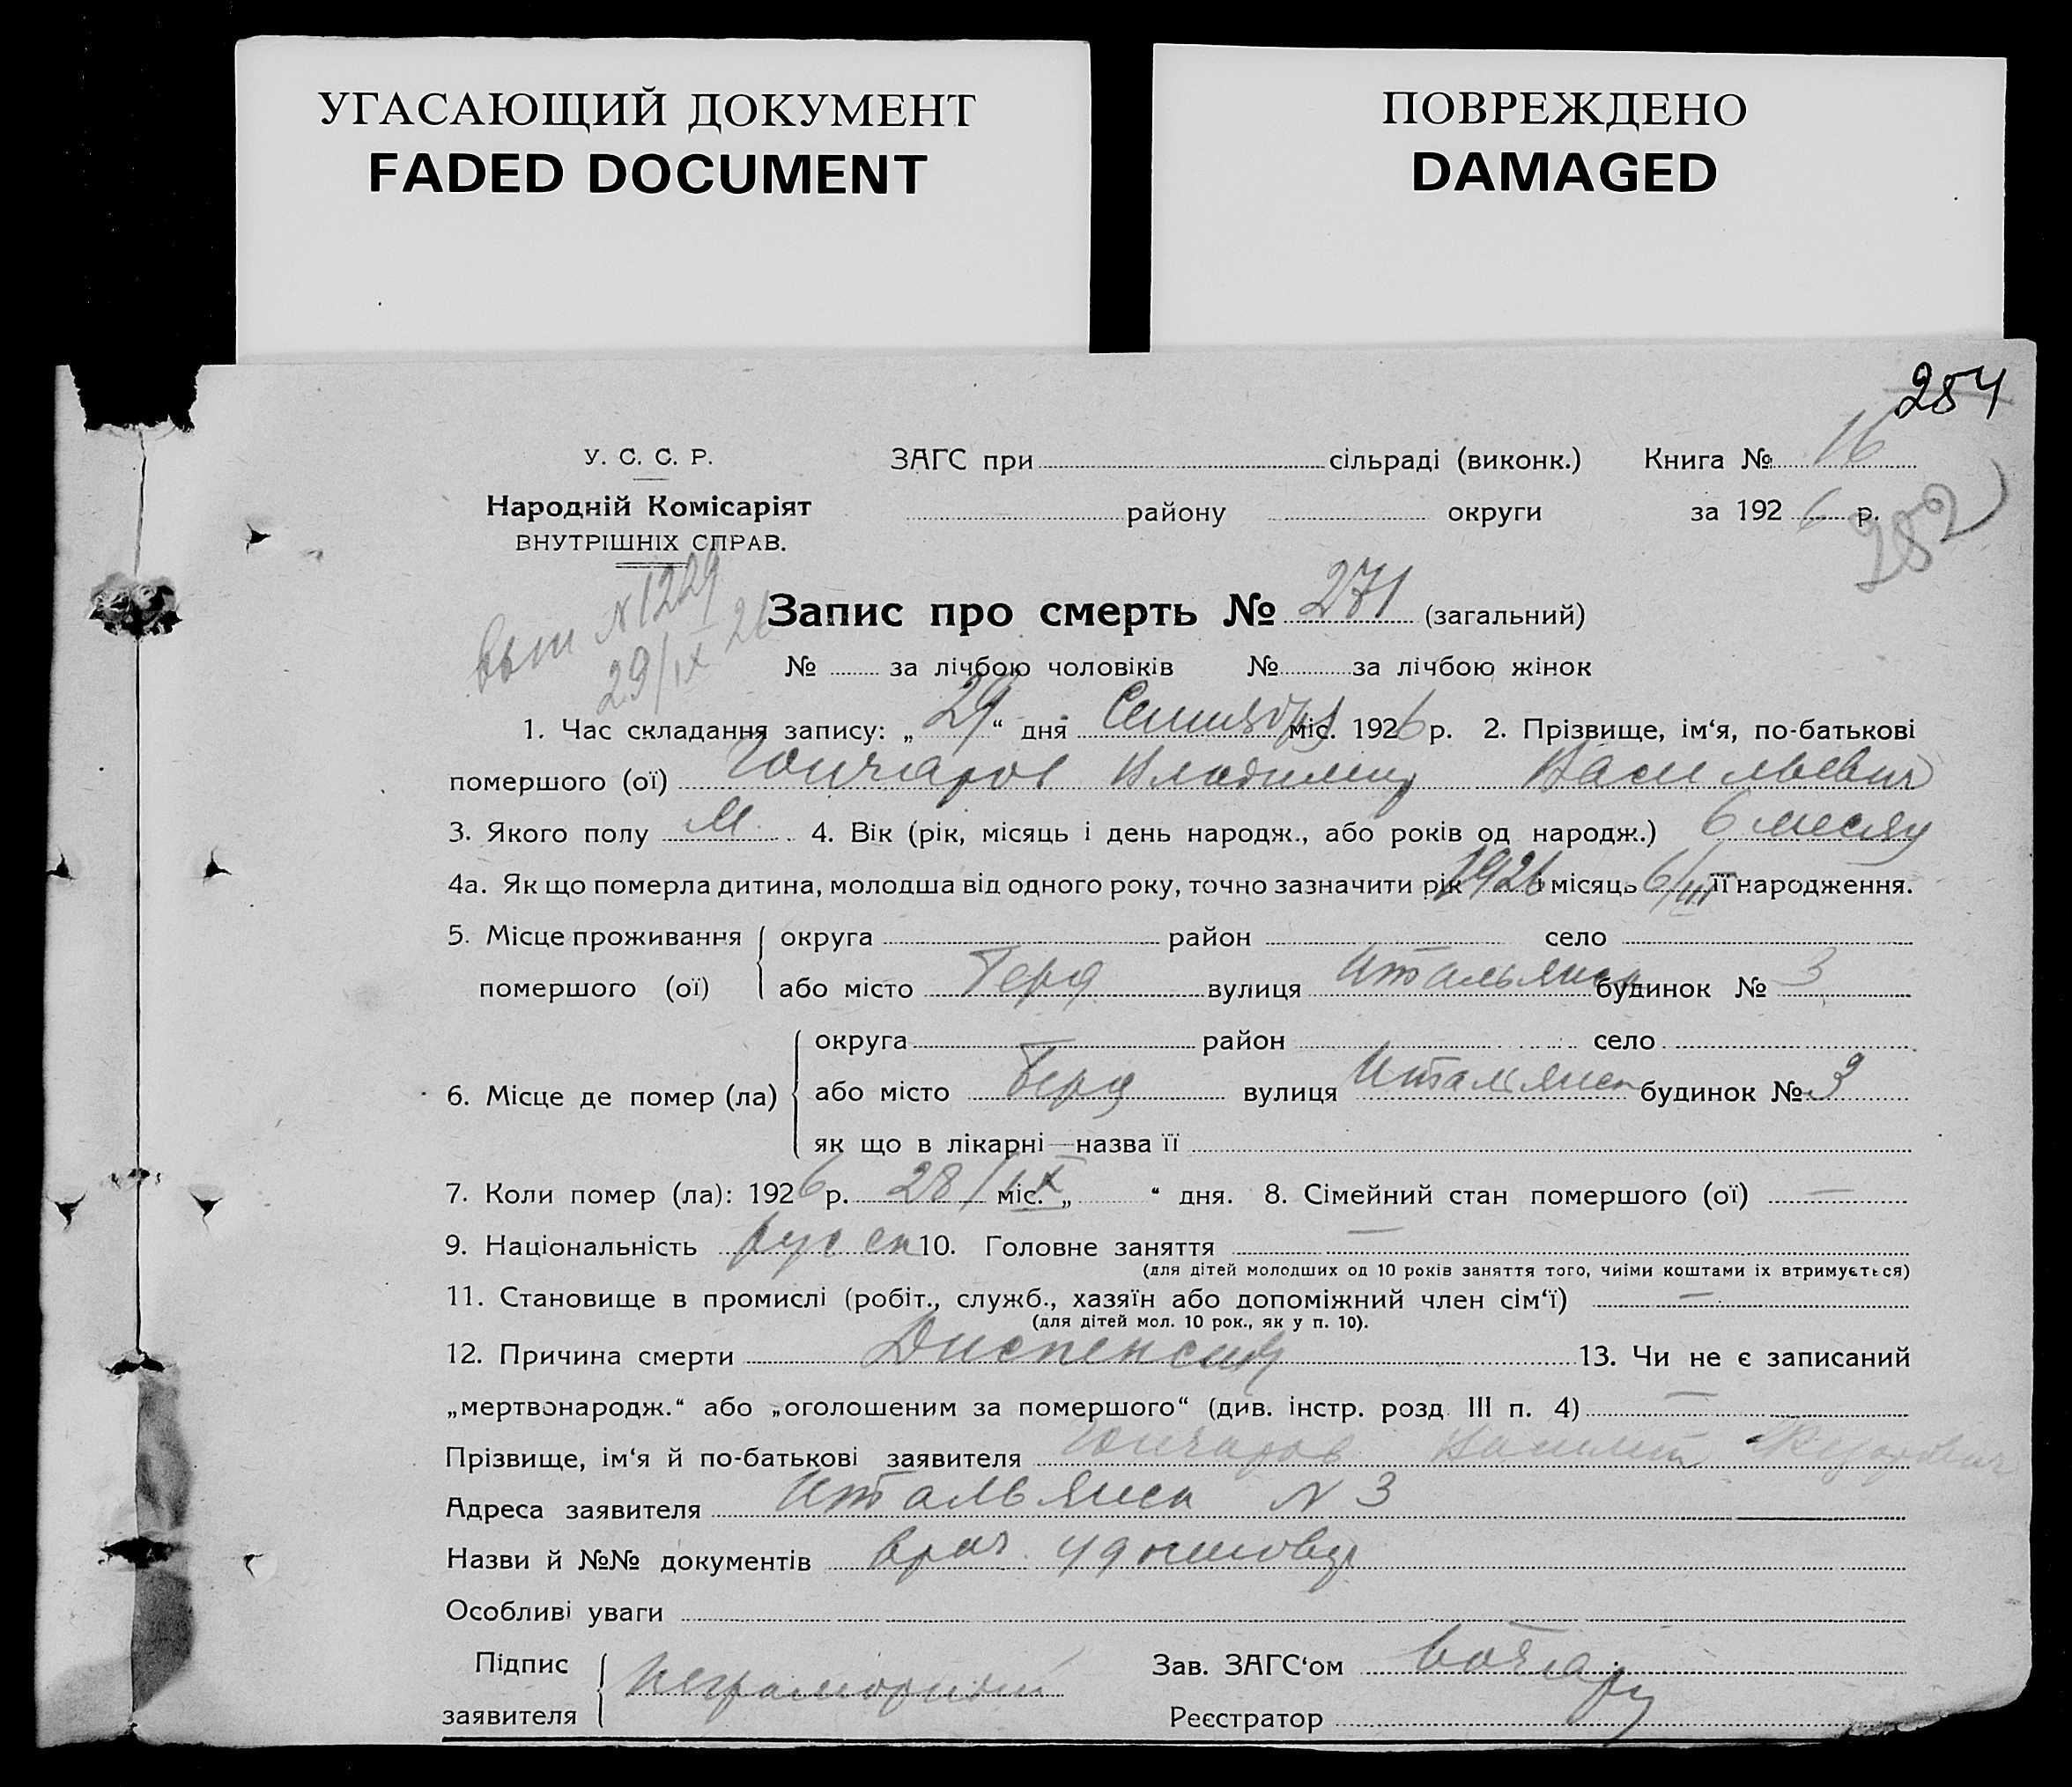 УГАСАЮЩИЙ ДОКУМЕНТ
FADED DOCUMENT
ПОВРЕЖДЕНО
DAMAGED
284
У. С. С. Р. ЗАГС при сільраді (виконк.) Книга № 16
Народній Комісаріят району округи за 1926 р.
ВНУТРІШНІХ СПРАВ.
282
вып N 1229
29/IX 26
Запис про смерть № 271 (загальний)
№ за лічбою чоловіків № за лічбою жінок
1. Час складання запису: „29“ дня Сентября міс. 1926 р. 2. Прізвище, ім‘я, по-батькові
помершого (ої) Гончаров Владимир Васильевич
3. Якого полу М 4. Вік (рік, місяць і день народж., або років од народж.) 6 месяц
4а. Як що померла дитина, молодша від одного року, точно зазначити рік 1926 і місяць 6/III її народження.
5. Місце проживання округа район село
помершого (ої) або місто Берд вулиця Итальянск будинок № 3
округа район село
6. Місце де помер (ла) або місто Берд вулиця Итальянск будинок № 3
як що в лікарні—назва її
7. Коли помер (ла): 1926 р. 28/IX міс. „ “ дня. 8. Сімейний стан помершого (ої) —
9. Національність русск 10. Головне заняття —
(для дітей молодших од 10 років заняття того, чиїми коштами іх втримується)
11. Становище в промислі (робіт., служб., хазяїн або допоміжний член сім‘ї) —
(для дітей мол. 10 рок., як у п. 10).
12. Причина смерти Диспенсия 13. Чи не є записаний
„мертвонародж.“ або „оголошеним за помершого“ (див. інстр. розд III п. 4) —
Прізвище, ім‘я й по-батькові заявителя Гончаров Василий
Адреса заявителя Итальянск N 3
Назви й №№ документів врач
Особливі уваги
Підпис Неграмотный Зав. ЗАГС‘ом
заявителя Реєстратор